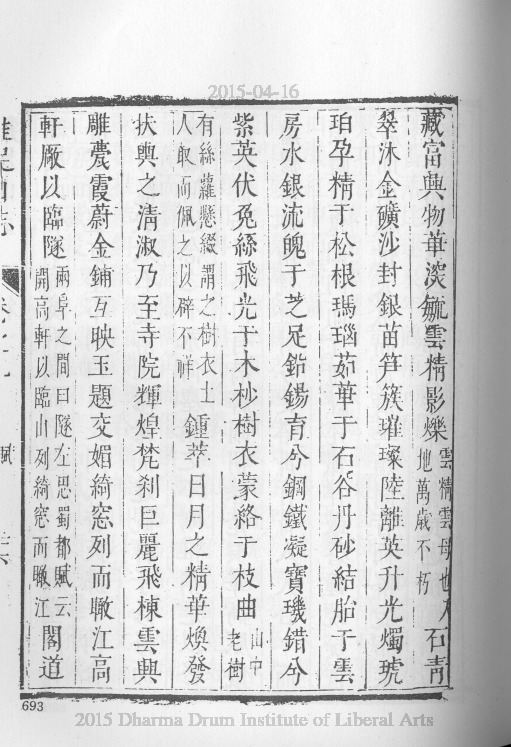 2015-04-16
藏富與物華滋毓雲精影爍雲精雲母也入地萬歲不朽石青
翠沐金礦沙封銀苗笋簇璀璨陸離英升光燭琥
珀孕精于松根瑪瑙茹華于石谷丹砂結胎于雲
房水銀流魄于芝足鉛錫育兮鋼鐵凝寶璣錯兮
紫英伏兔絲飛光于木杪樹衣蒙絡于枝曲山中老樹
有絲蘿懸綴謂之樹衣土人取而佩之以辟不祥鍾萃日月之精華煥發
扶輿之清淑乃至寺院輝煌梵刹巨麗飛棟雲興
雕甍霞蔚金鋪互映玉題交媚綺窓列而瞰江高
軒厰以臨隧兩阜之間曰隧左思蜀都賦云開高軒以臨山列綺窓而瞰江閣道
賦
693
2015 Dharma Drum Institute of Liberal Arts